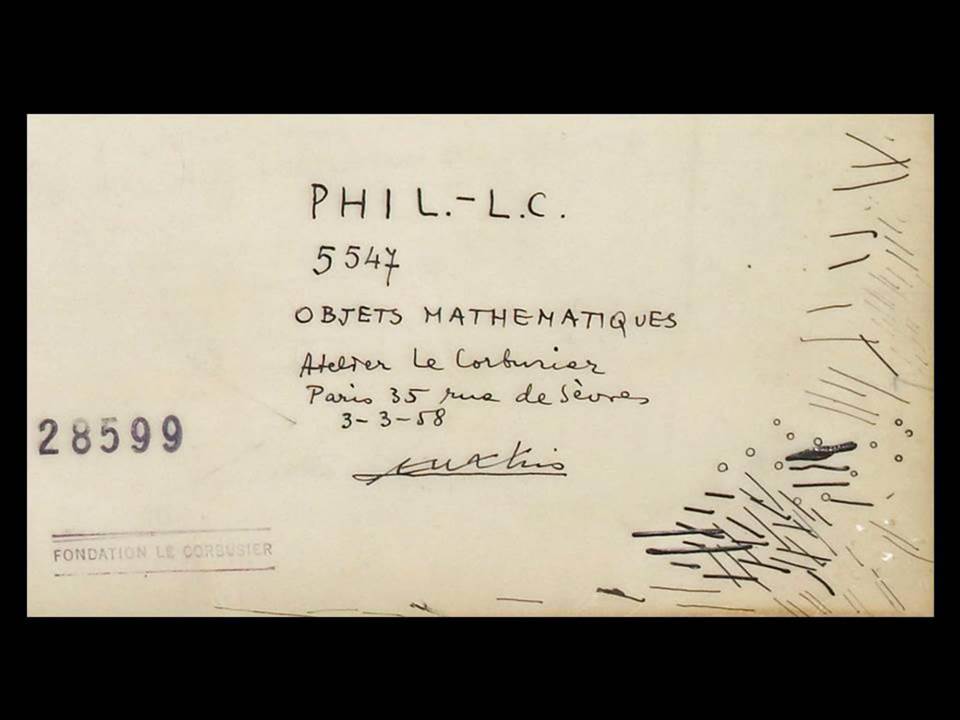 PHIL.-L.C.
5547
OBJETS MATHEMATIQUES
Atelier Le Corbusier
Paris 35 rue de Sèvres
3-3-58
28599
FONDATION LE CORBUSIER